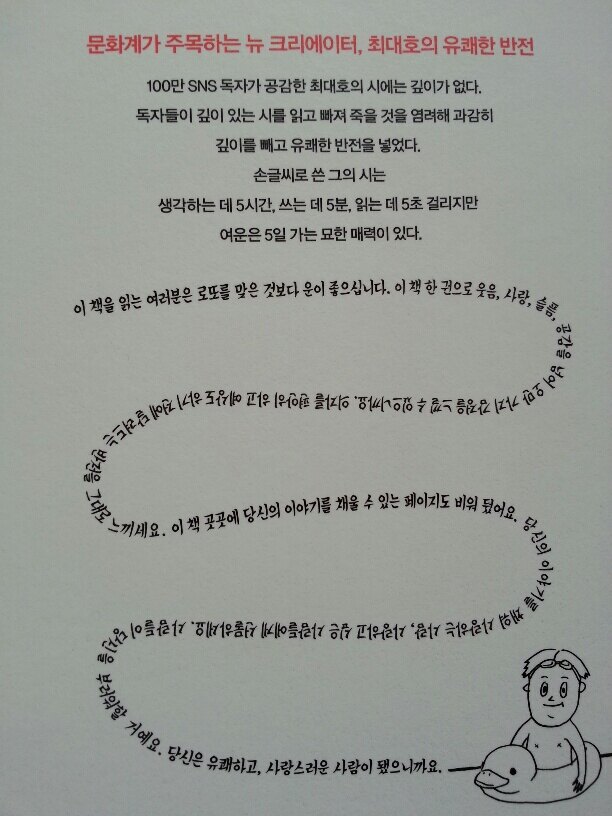 문화계가 주목하는 뉴 크리에이터, 최대호의 유쾌한 반전
100만 SNS 독자가 공감한 최대호의 시에는 깊이가 없다.
독자들이 깊이 있는 시를 읽고 빠져 죽을 것을 염려해 과감히
깊이를 빼고 유쾌한 반전을 넣었다.
손글씨로 쓴 그의 시는
생각하는 데 5시간, 쓰는 데 5분, 읽는 데 5초 걸리지만
여운은 5일 가는 묘한 매력이 있다.
이 책을 읽는 여러분은 로또를 맞은 것보다 운이 좋으십니다. 이 책 한 권으로 웃음, 사랑, 슬픔, 공감을 넘어 오만 가지 감정을 느낄 수 있으니까요. 의자를 편안히 하고 예상도 하기 전에 달려드는 반전을 그대로 느끼세요. 이 책 곳곳에 당신의 이야기를 채울 수 있는 페이지도 비워 뒀어요. 당신의 이야기를 채워 사랑하는 사람, 사랑하고 싶은 사람들에게 선물하세요. 사람들이 당신을 부러워할 거예요. 당신은 유쾌하고, 사랑스러운 사람이 됐으니까요.